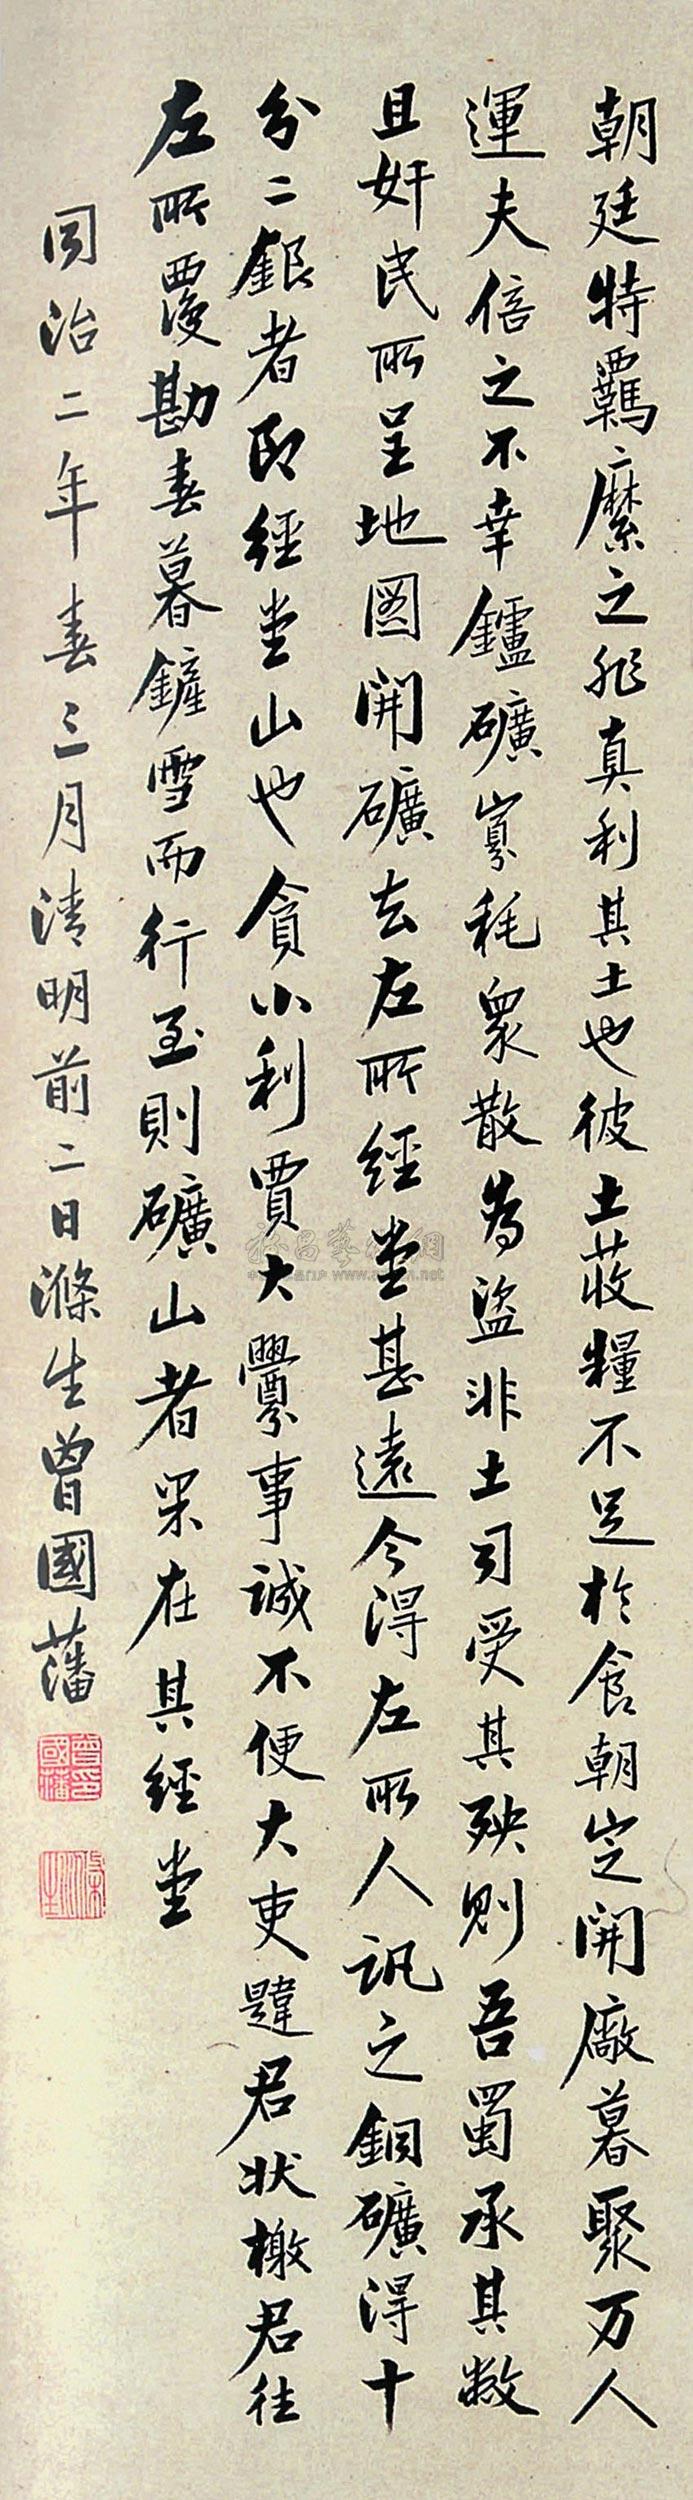 朝廷特羈縻之非真利其土也彼土莜糧不足於食朝定開廠暮聚万人
運夫倍之不幸鑪礦寡耗眾散為盜非土司受其殃則吾蜀承其敝
且奸民所呈地图開礦去左所經堂甚遠今得左所人訊之銅礦得十
分二銀者即經堂山也貪小利賈大釁事誠不便大吏韙君狀檄君往
左所覆勘春暮鏟雪而行至則礦山者果在其經堂
同治二年春三月清明前二日滌生曾國藩
曾國藩印
www.net